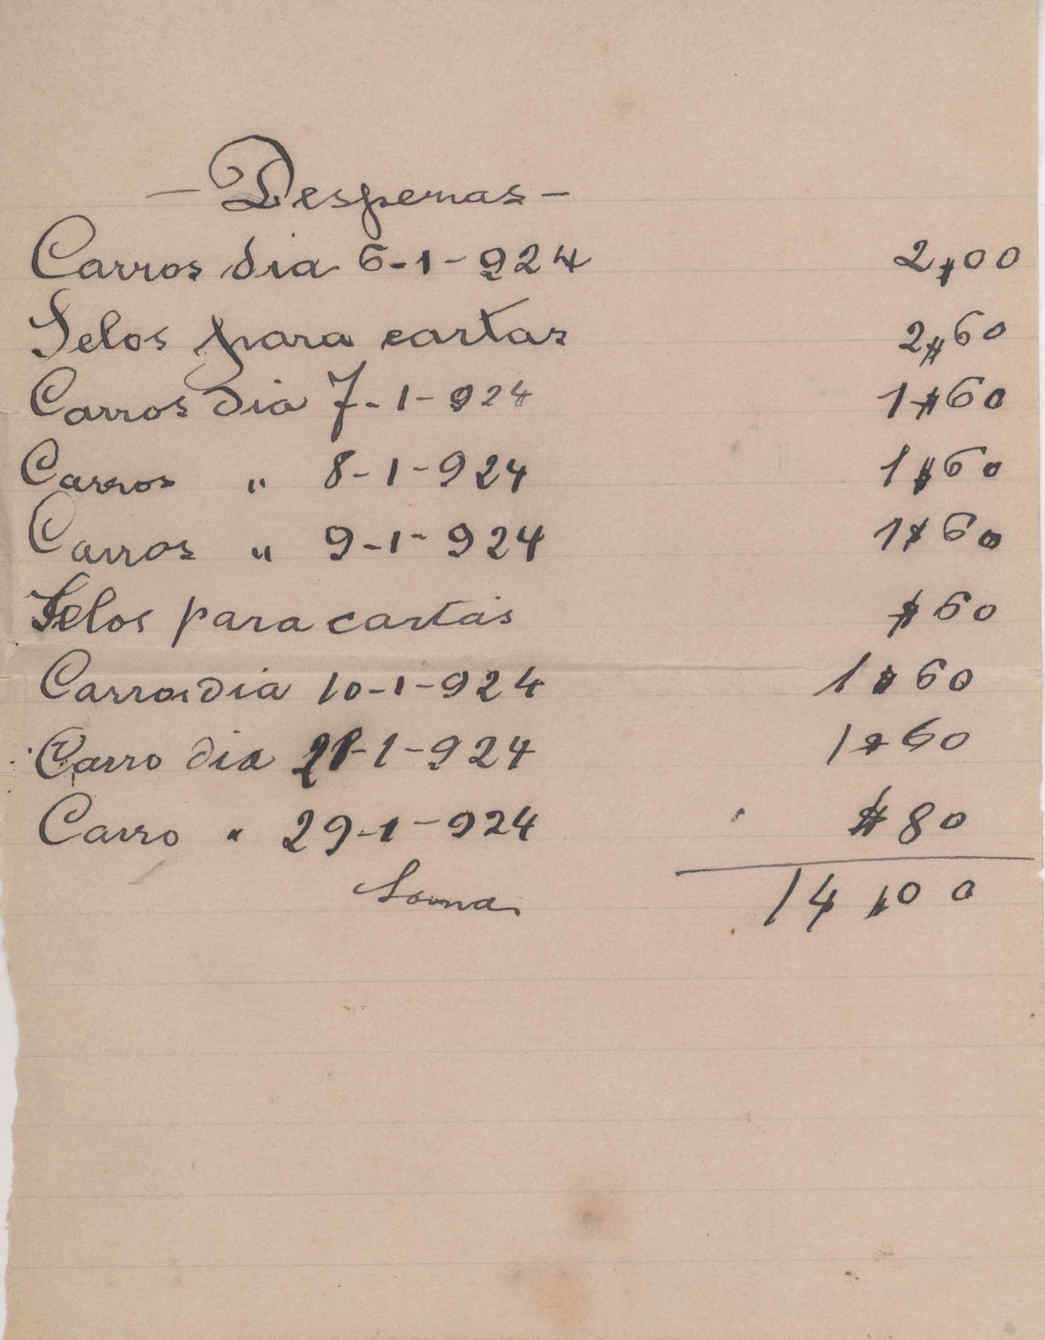 — Despezas —
Carros dia 6-1-924 2$00
Selos para cartas 2$60
Carros dia 7-1-924 1$60
Carros " 8-1-924 1$60
Carros " 9-1-924 1$60
Selos para cartas $60
Carros dia 10-1-924 1$60
Carro dia 21-1-924 1$60
Carro " 29-1-924 $80
Soma 14$00